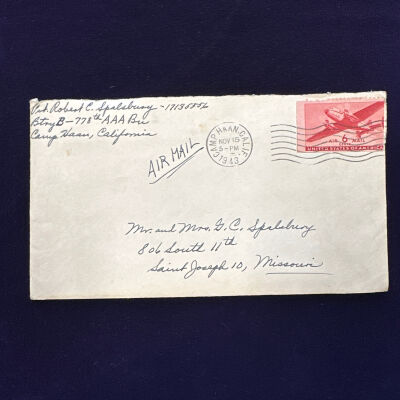 Pvt. Robert C. Spalsbury - 17135556
Btry B - 778th AAA Bn
Camp Haan, California
AIR MAIL
CAMP HAAN, CALIF.
NOV 15
5 - PM
1943
6¢
AIR MAIL
UNITED STATES OF AMERICA
Mr. and Mrs. G. C. Spalsbury
806 South 11th
Saint Joseph 10, Missouri